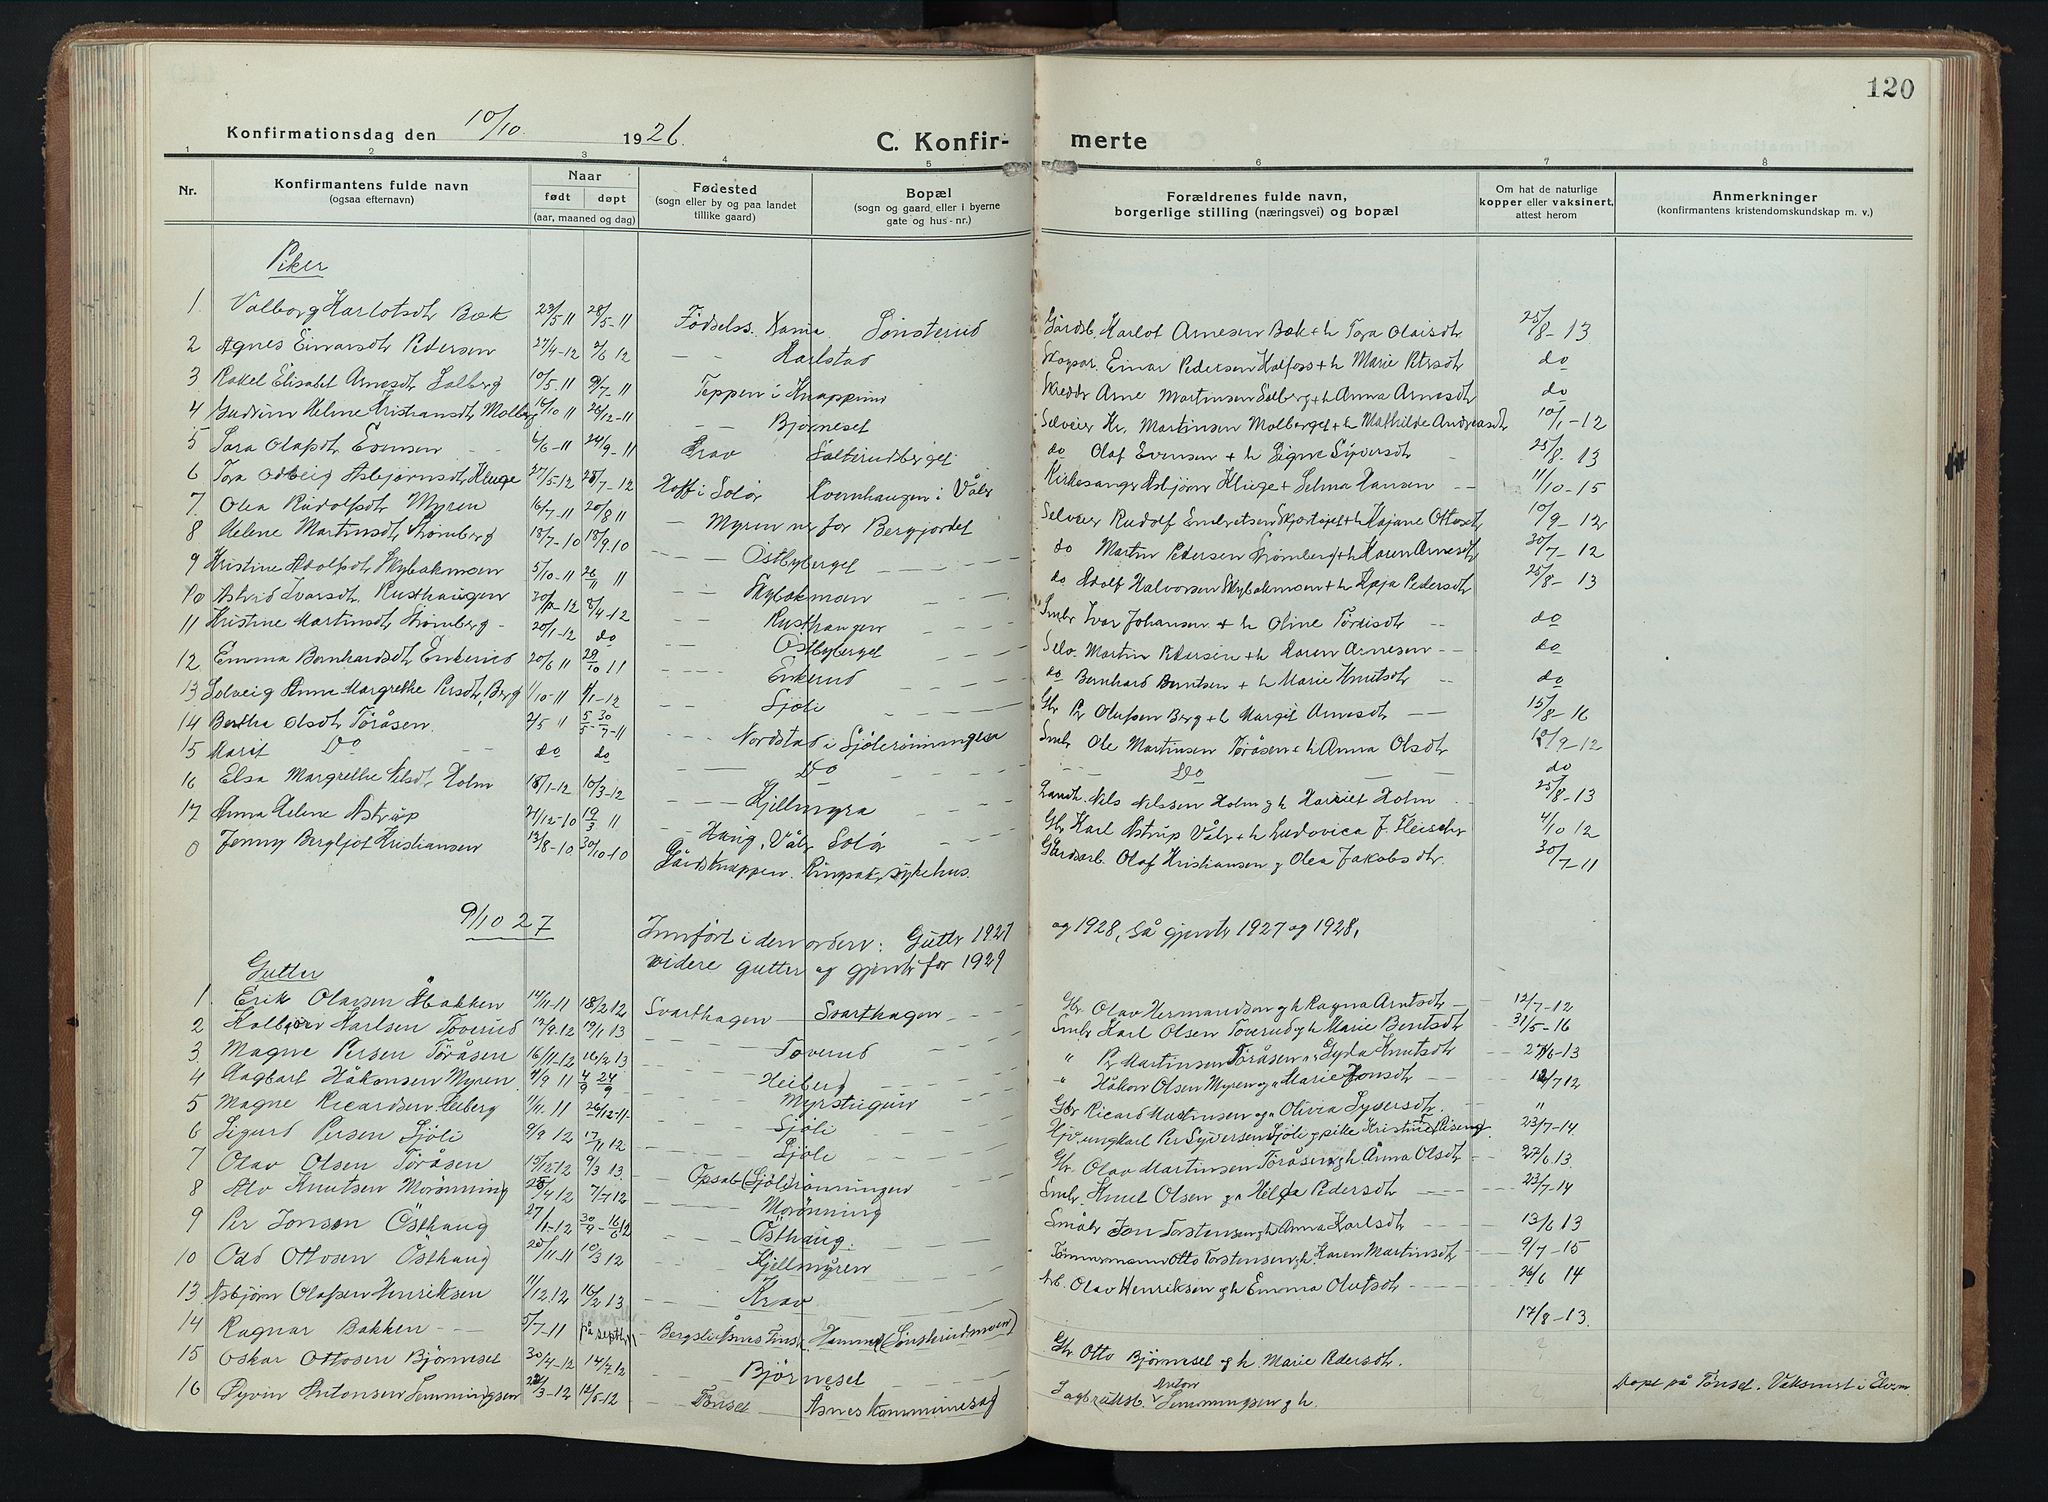 120
Konfirmationsdag den 10/10. 1926. C. Konfir- merte
1 2 3 4 5 6 7 8
Nr. Konfirmantens fulde navn (ogsaa efternavn) Naar født døpt (aar, maaned og dag) Fødested (sogn eller by og paa landet tillike gaard) Bopæl (sogn og gaard, eller i byerne gate og hus-nr.) Forældrenes fulde navn, borgerlige stilling (næringsvei) og bopæl Om hat de naturlige kopper eller vaksinert, attest herom Anmerkninger (konfirmantens kristendomskundskap m. v.)
Piker
1. Valborg Karlotsdtr Bæk 23/5 11 28/5-11 Fødselss. Xania Sønsterud Gårdb. Karlot Arnesen Bæk + h Tora Olaisdtr 25/8-13
2 Agnes Einarsdtr Pedersen 27/4-12 2/6 12 — — Karlstad Einar Pedersen Kalfoss + h Marie Petrsdtr do
3 Rakel Elisabet Arnesdtr Solberg 10/5-11 9/7-11 Teppen i Knapprud Skreddr Arne Martinsen Solberg + h Anna Arnesdtr do
4 Gudrun Helene Kristiansdtr Molberg 16/10 11 26/12-11 — — Bjørneset Selveier Kr. Martinsen Molberget + h Mathilde Andreasdtr 10/1-12
5 Sara Olafsdtr Evensen 6/6-11 24/9-11 Krav Sætterudberget do Olaf Evensen + h Signe Syversdtr 25/8-13
6 Tora Odveig Asbjørnsdtr Kluge 27/5-12 28/7-12 Hoff i Solør Kvernhaugen i Våler Kirkesanger Asbjørn Kluge + Selma Hansen — 11/10-15
7. Olea Rudolfsdtr Myren 16/7-11 20/8 11 — Myren nrfor Bergjordet Selveier Rudolf Embretsen + h Kajane Ottosdtr 10/9-12
8 Helene Martinsdtr Strømberg 18/7-10 18/9.10 — — Østbyberget do Martin Pedersen Strømberg + h Karen Arnesdtr 30/7-12
9 Kristine Adolfsdtr Skybakmoen 5/10-11 26/11 11 — — Skybakmoen do Adolf Halvorsen Skybakmoen + h Kaja Pedersdtr 25/8-13
10 Astrid Ivarsdtr Rusthaugen 8/4-12 — — Rusthaugen Smbr Ivar Johansen + h Oline Tordisdtr — do
11 Kristine Martinsdtr Strømberg — 20/1-12 do — — Østbyberget Selv. Martin Pedersen + h Karen Arnesen — do
12 Emma Bernhardsdtr Enkerud 20/6 11 29/10 11 — — Enkerud do Bernhard Berntsen + h Marie Knutsdtr — do
13 Solveig Anne Margrethe Persdtr, Berg 1/10-11 1/1-12 — — Sjøli Gbr Pr Olafsen Berg + h Margit Arnesdtr — 15/8-16
14 Bertha Olsdtr Toråsen. 2/5 11 30/7-11 — — Nordstad i Sjølirønningen Smbr Ole Martinsen Toråsen + h Anna Olsdtr 10/9-12
15 Marit Do do do — Do — Do — do
16 Elsa Margrethe Nilsdtr. Holm 18/1-12 10/3-12 — — Kjellmyra Landh. Nils Nilssen Holm g h Harriet Holm 25/8-13
17 Anna Helene Astrup 21/12-10 19/3 11 — Haug, Våler Solør Gbr Karl Astrup Våler + h Ludovica J. Fleischer 4/10 12
0 Jenny Bergljot Kristiansen 13/8-10 30/10-10 Gårdsknappen. Rinpak sykehus. Gårdsarb. Olaf Kristiansen g Olea Jakobsdtr. 30/7-11
9/10 27 Innført i den orden: Gutter 1927 og 1928, så gjenter 1927 og 1928,
videre gutter og gjenter for 1929
Gutter
1. Erik Olavsen Bakken 14/11-11 18/2 12 Svarthagen Svarthagen Gbr Olav Hermandsen g h Ragna Arntsdtr 12/7-12
2 Kolbjørn Karlsen Toverud 17/9.12 19/1 13 Toverud Smbr Karl Olsen Toverud g h Marie Berntsdtr 31/5-16
3. Magne Persen Toråsen 16/11-12 16/2 13 — Heiberg " Pr Martinsen Toråsen Gyda Knutsdtr 27/6-13
4 Hagbart Håkonsen Myren. 4/9 11 24/9 — Myrstuguv " Håkon Olsen Myren Marie Jonsdtr 12/7 12
5 Magne Ricardsen Heiberg 1/11.11 26/12-11. — Sjøli Gbr Ricard Martinsen Olivia Syversdtr. "
6 Sigurd Persen Sjøli 9/9 12 17/11 12 — Sjøli ungkarl Per Syversen Sjøli g pike Kristine 23/7-14
7 Olav Olsen Toråsen 15/12-12 9/3 13. — Opsal (Sjølirønningen Gbr. Olav Martinsen Toråsen g h. Anna Olsdtr 27/6.13
8 Alv Knutsen Morønning 28/4 12 7/7 12 — Morønning Smbr. Knut Olsen Hilda Pedersdtr 23/7-14
9 Per Jonsen Østhaug 27/1-12 — Østhaug. Småbr Jon Torstensen g h Anna Karlsdtr 13/6 13
10 Odd Ottosen Østhaug 20/11-11 10/3 12 — Kjellmyren Tømmermann Otto Torstensen g h. Karen Martinsdtr 9/7-15
13 Asbjørn Olafsen Henriksen 1/12.12 16/2 13 — Krav Arb. Olav Henriksen g h Emma Olufsdtr 26/6 14
14 Ragnar Bakken 5/7-11 på sept Bergsli Åsnes Finsk. Hammer (Sønsterudmoen) 17/8-13.
15 Oskar Ottosen Bjørneset 30/4-12 14/7 12 — Bjørneset Gbr Otto Bjørneset g h. Marie Pedersdtr.
16 Øyvin Antonsen Simmingsen 22/3-12 12/5-12 — Tønset Åsnes kommunesag Sagbruksb. Anton g h. Døpt på Tønset. Vaksinert i Elvrum